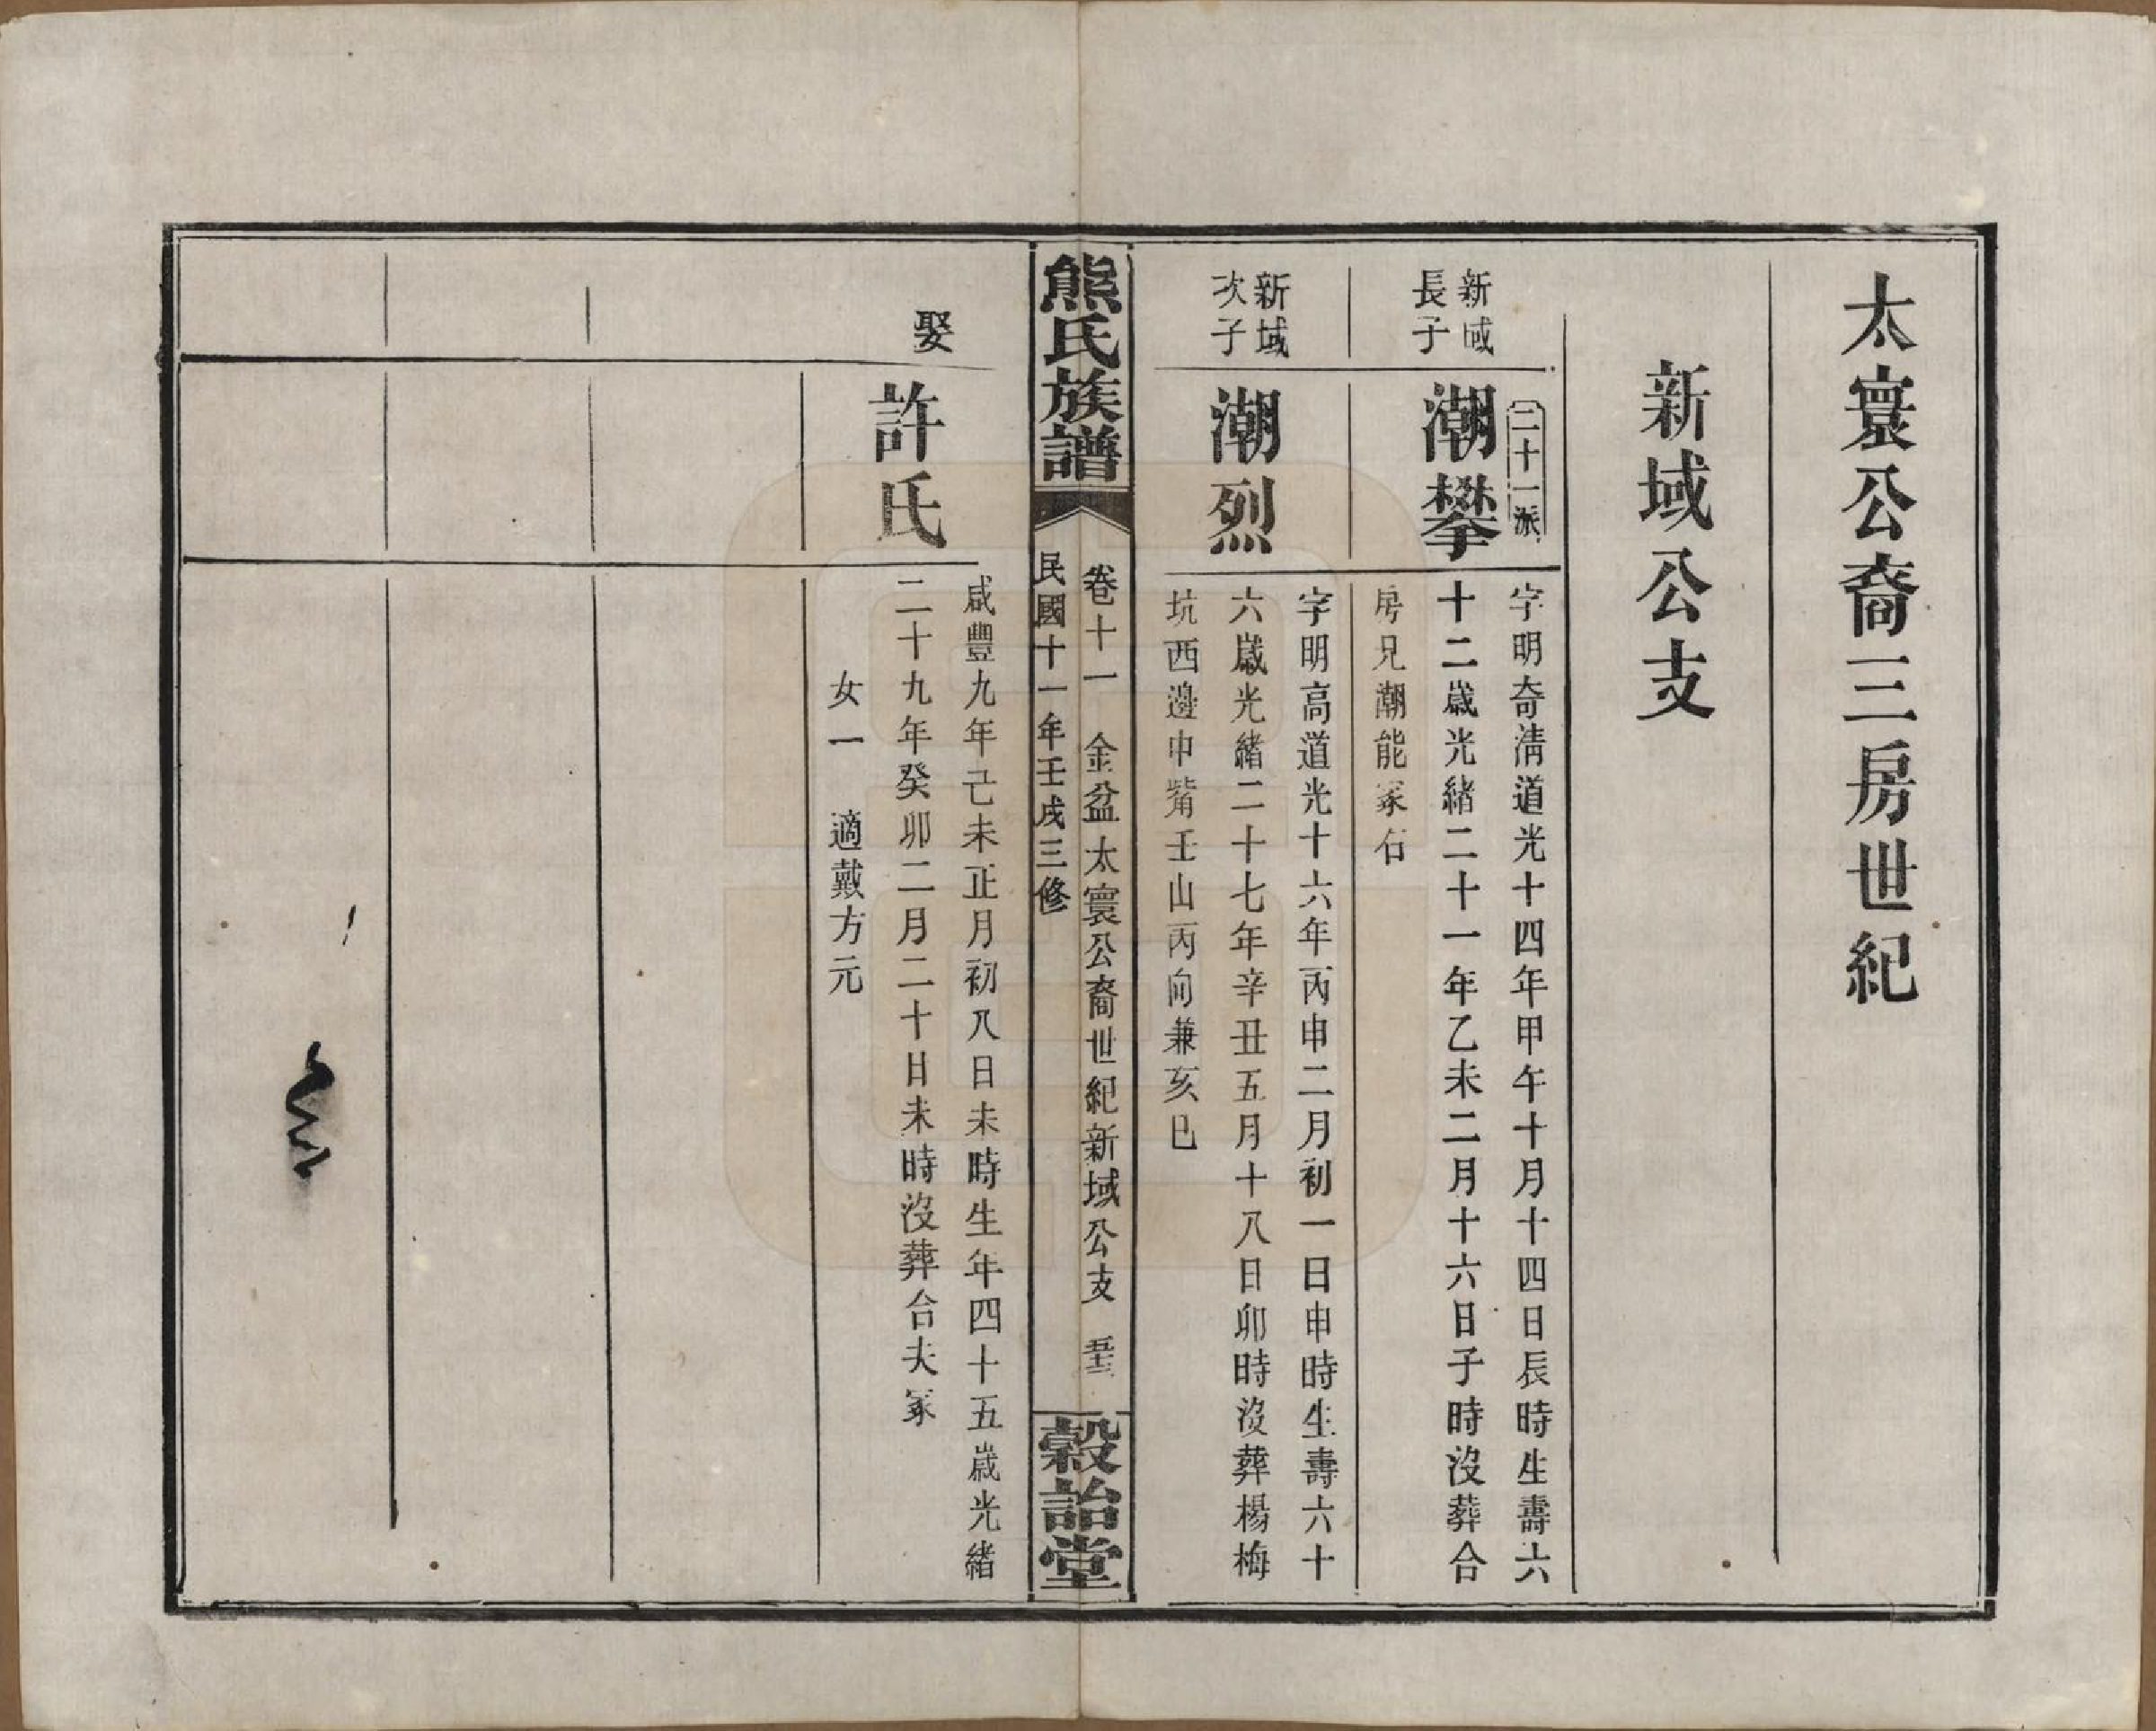 太寰公裔三房世紀
新域公支
新域
長子
二十一派
潮攀
字明奇淸道光十四年甲午十月十四日辰時生壽六
十二歲光緒二十一年乙未二月十六日子時沒葬合
房兄潮能冢右
新域
次子
潮烈
字明高道光十六年丙申二月初一日申時生壽六十
六歲光緒二十七年辛丑五月十八日卯時沒葬楊梅
坑西邊中觜壬山丙向兼亥巳
熊氏族譜
卷十一 金盆太寰公裔世紀新域公支
民國十一年壬戌三修
穀詒堂
娶
許氏
咸豐九年己未正月初八日未時生年四十五歲光緒
二十九年癸卯二月二十日未時沒葬合夫冢
女一 適戴方元